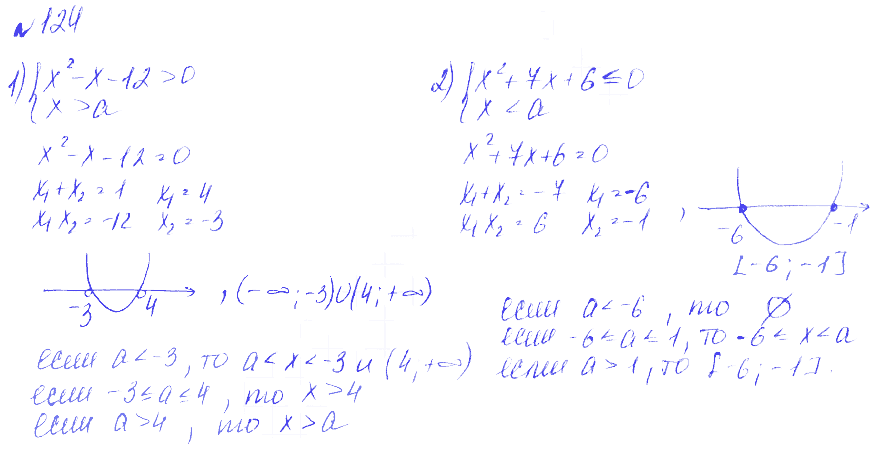 №124
1) { x² - x - 12 > 0
x > a
x² - x - 12 = 0
x₁ + x₂ = 1 x₁ = 4
x₁ x₂ = -12 x₂ = -3
-3 4 , (-∞; -3)∪(4; +∞)
если a < -3, то a < x < -3 и (4, +∞)
если -3 ≤ a ≤ 4, то x > 4
если a > 4, то x > a
2) { x² + 7x + 6 ≤ 0
x < a
x² + 7x + 6 = 0
x₁ + x₂ = -7 x₁ = -6
x₁ x₂ = 6 x₂ = -1 ,
-6 -1
[-6; -1]
если a < -6, то ∅
если -6 ≤ a ≤ 1, то -6 ≤ x < a
если a > 1, то [-6; -1].